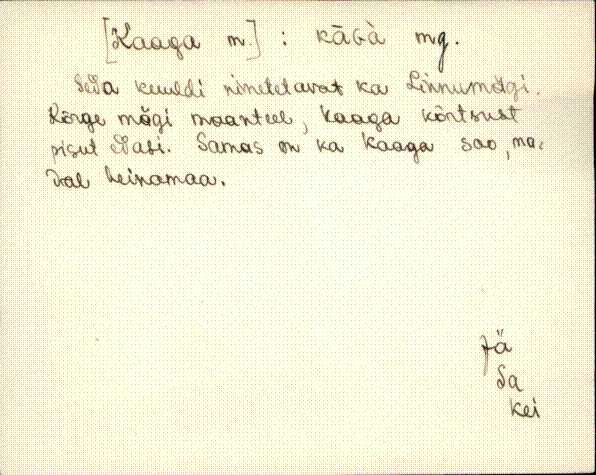 [Kaaga m.] : kāGà mg.
Seda kuuldi nimetetavat ka Linnumägi.
Kõrge mägi maanteel, Kaaga kõrtsust
pisut edasi. Samas on ka Kaaga sao, ma-
dal heinamaa.
Jä
Sa
kei